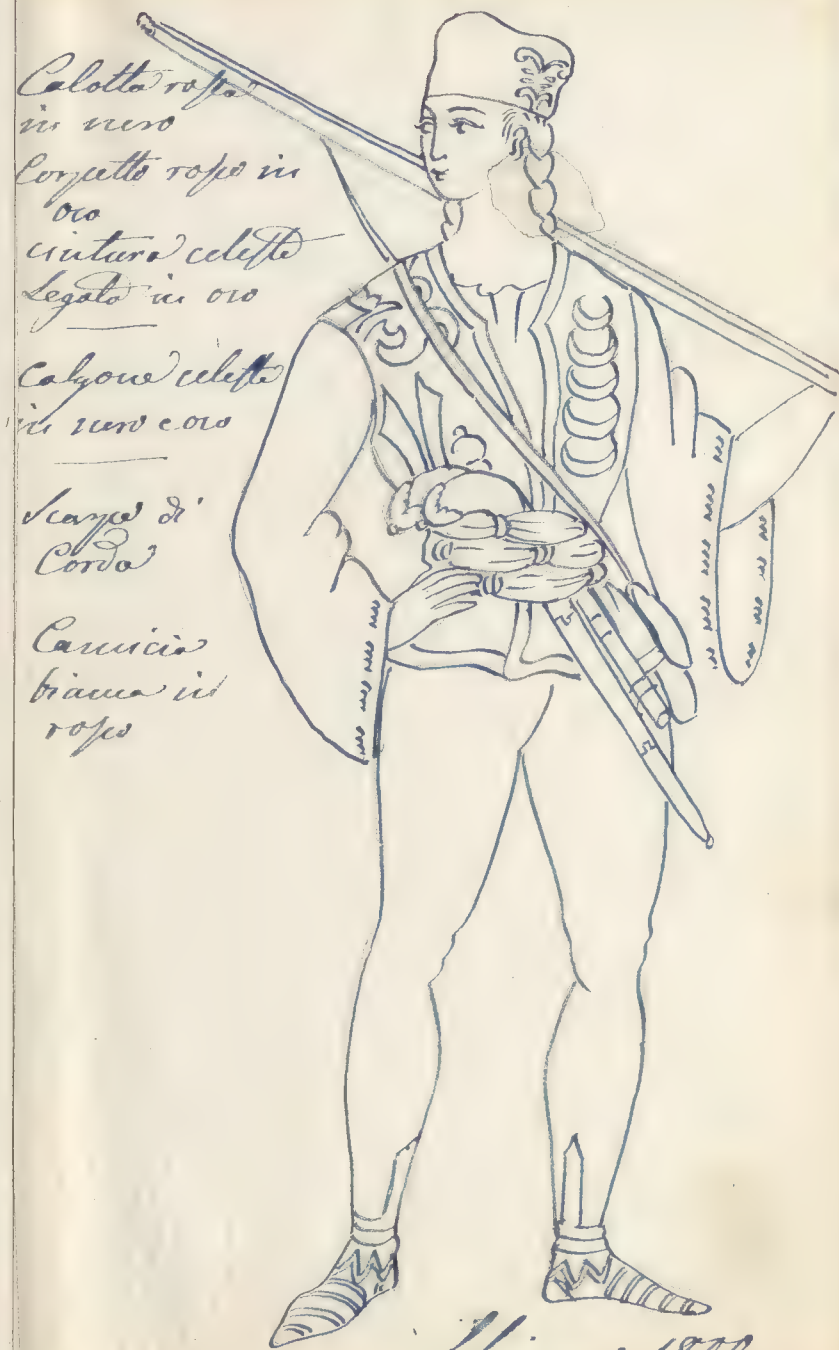 Calotta rossa
in nero
Corpetto rosso in
oro
cintura celeste
Legata in oro
Calzone celeste
in nero e oro
Scarpe di
Corda
Camicia
bianca in
rosso